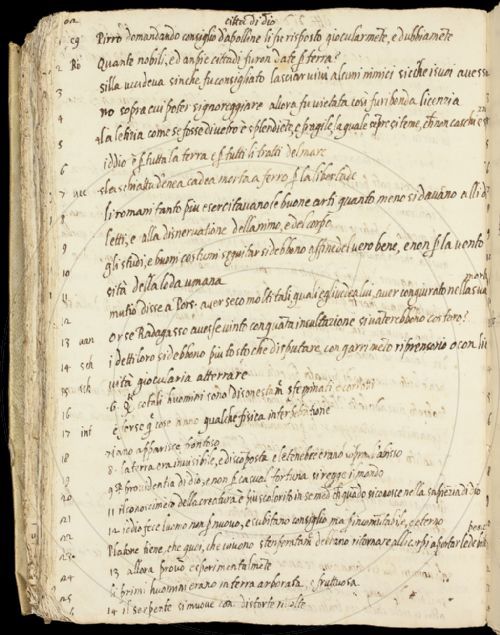 città di dio
Pirro domandando consiglio d'apolline li fu risposto giocularmẽte, e dubbiamẽte
Quante nobili, ed anpie cittadi furon date
silla uccideva sinche fu consigliato lasciar vivi alcuni nimici siche i suoi avess
no sopra cui poter signoreggiare allora fu vietata così furibonda licenzia
la letizia come se fosse di vetro è splendiẽte, e fragile la quale sẽpre si teme, non caschi
iddio è p tutta la terra e p tutti li tratti del mare
la schiattudenea cadea morta a ferro p la libertade
li romani tanto piu esercitavano le buone arti quanto meno si davano alli d
letti, e alla disnervatione dell animo, e del corpo
gli studi, e buoni costumi seguitar si debbono a fine del vero bene, e non p la vento
sità della loda umana
mutio disse a Pors. aver seco molti tali quali egli vedea lui, aver congiurato nella sua
morte
Or se Radagasso avesse vinto con quanta insultazione si vanterebbono costoro?
i detti loro si debbono piu tosto che disputare, con garrimẽto riprensorio o con li
vità giocularia atterrare
6 cotali huomini sono disonestam. efeminati e corrotti
è forse q cose anno qualche fisica interpretatione
7 iano apparisce frontoso
8 la terra era invisibile, e discoposta e le tenebre erano sopra l'abisso
9 providentia di dio, e non p casual fortuna si regge il mondo
11 il conoscimẽto della creatura è piu scolorito in se med. che quãdo si conosce nella sapiẽzia di dio
12 iddio fece l'uomo non p nuovo, e subitano consiglio ma p incomutabile, e eterno
Platone tiene, che quei, che vivono stenperatam. debbano ritornare alli corpi a portar le debite
pene
13 allora provò esperimentalmẽte
li primi huomini erano in terra arborata, e fruttuosa
14 il serpente si muove con distorte molte